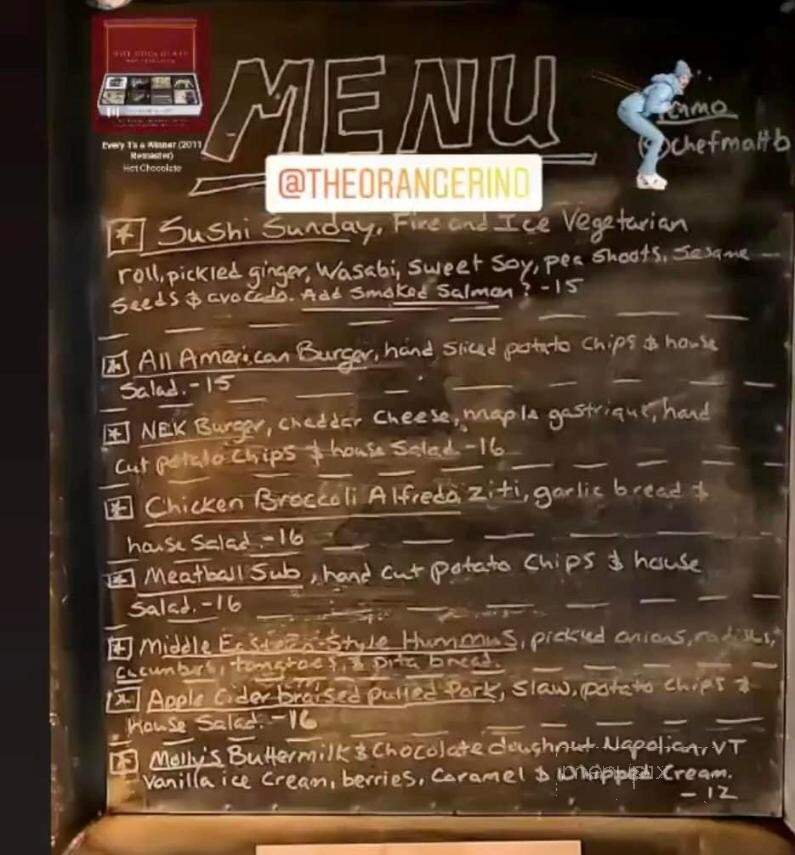 HOT CHOCOLATE
MENU
Every 1's a Winner (2011
Remaster)
Hot Chocolate
@chefmattb
@THEORANGERIND
Sushi Sunday, Fire and Ice Vegetarian
roll, pickled ginger, wasabi, sweet soy, pea shoots, sesame
seeds & avocado. Add smoked salmon? -15
All American Burger, hand sliced potato chips & house
salad. -15
NEK Burger, cheddar cheese, maple gastrique, hand
cut potato chips & house salad -16
Chicken Broccoli Alfredo ziti, garlic bread &
house salad. -16
Meatball Sub, hand cut potato chips & house
salad. -16
Middle Eastern-Style Hummus, pickled onions, radishes,
cucumbers, tomatoes, & pita bread.
Apple Cider braised pulled Pork, slaw, potato chips &
House Salad. -16
Molly's Buttermilk & Chocolate doughnut Napolian, VT
Vanilla ice cream, berries, caramel & whipped cream.
menupix
-12